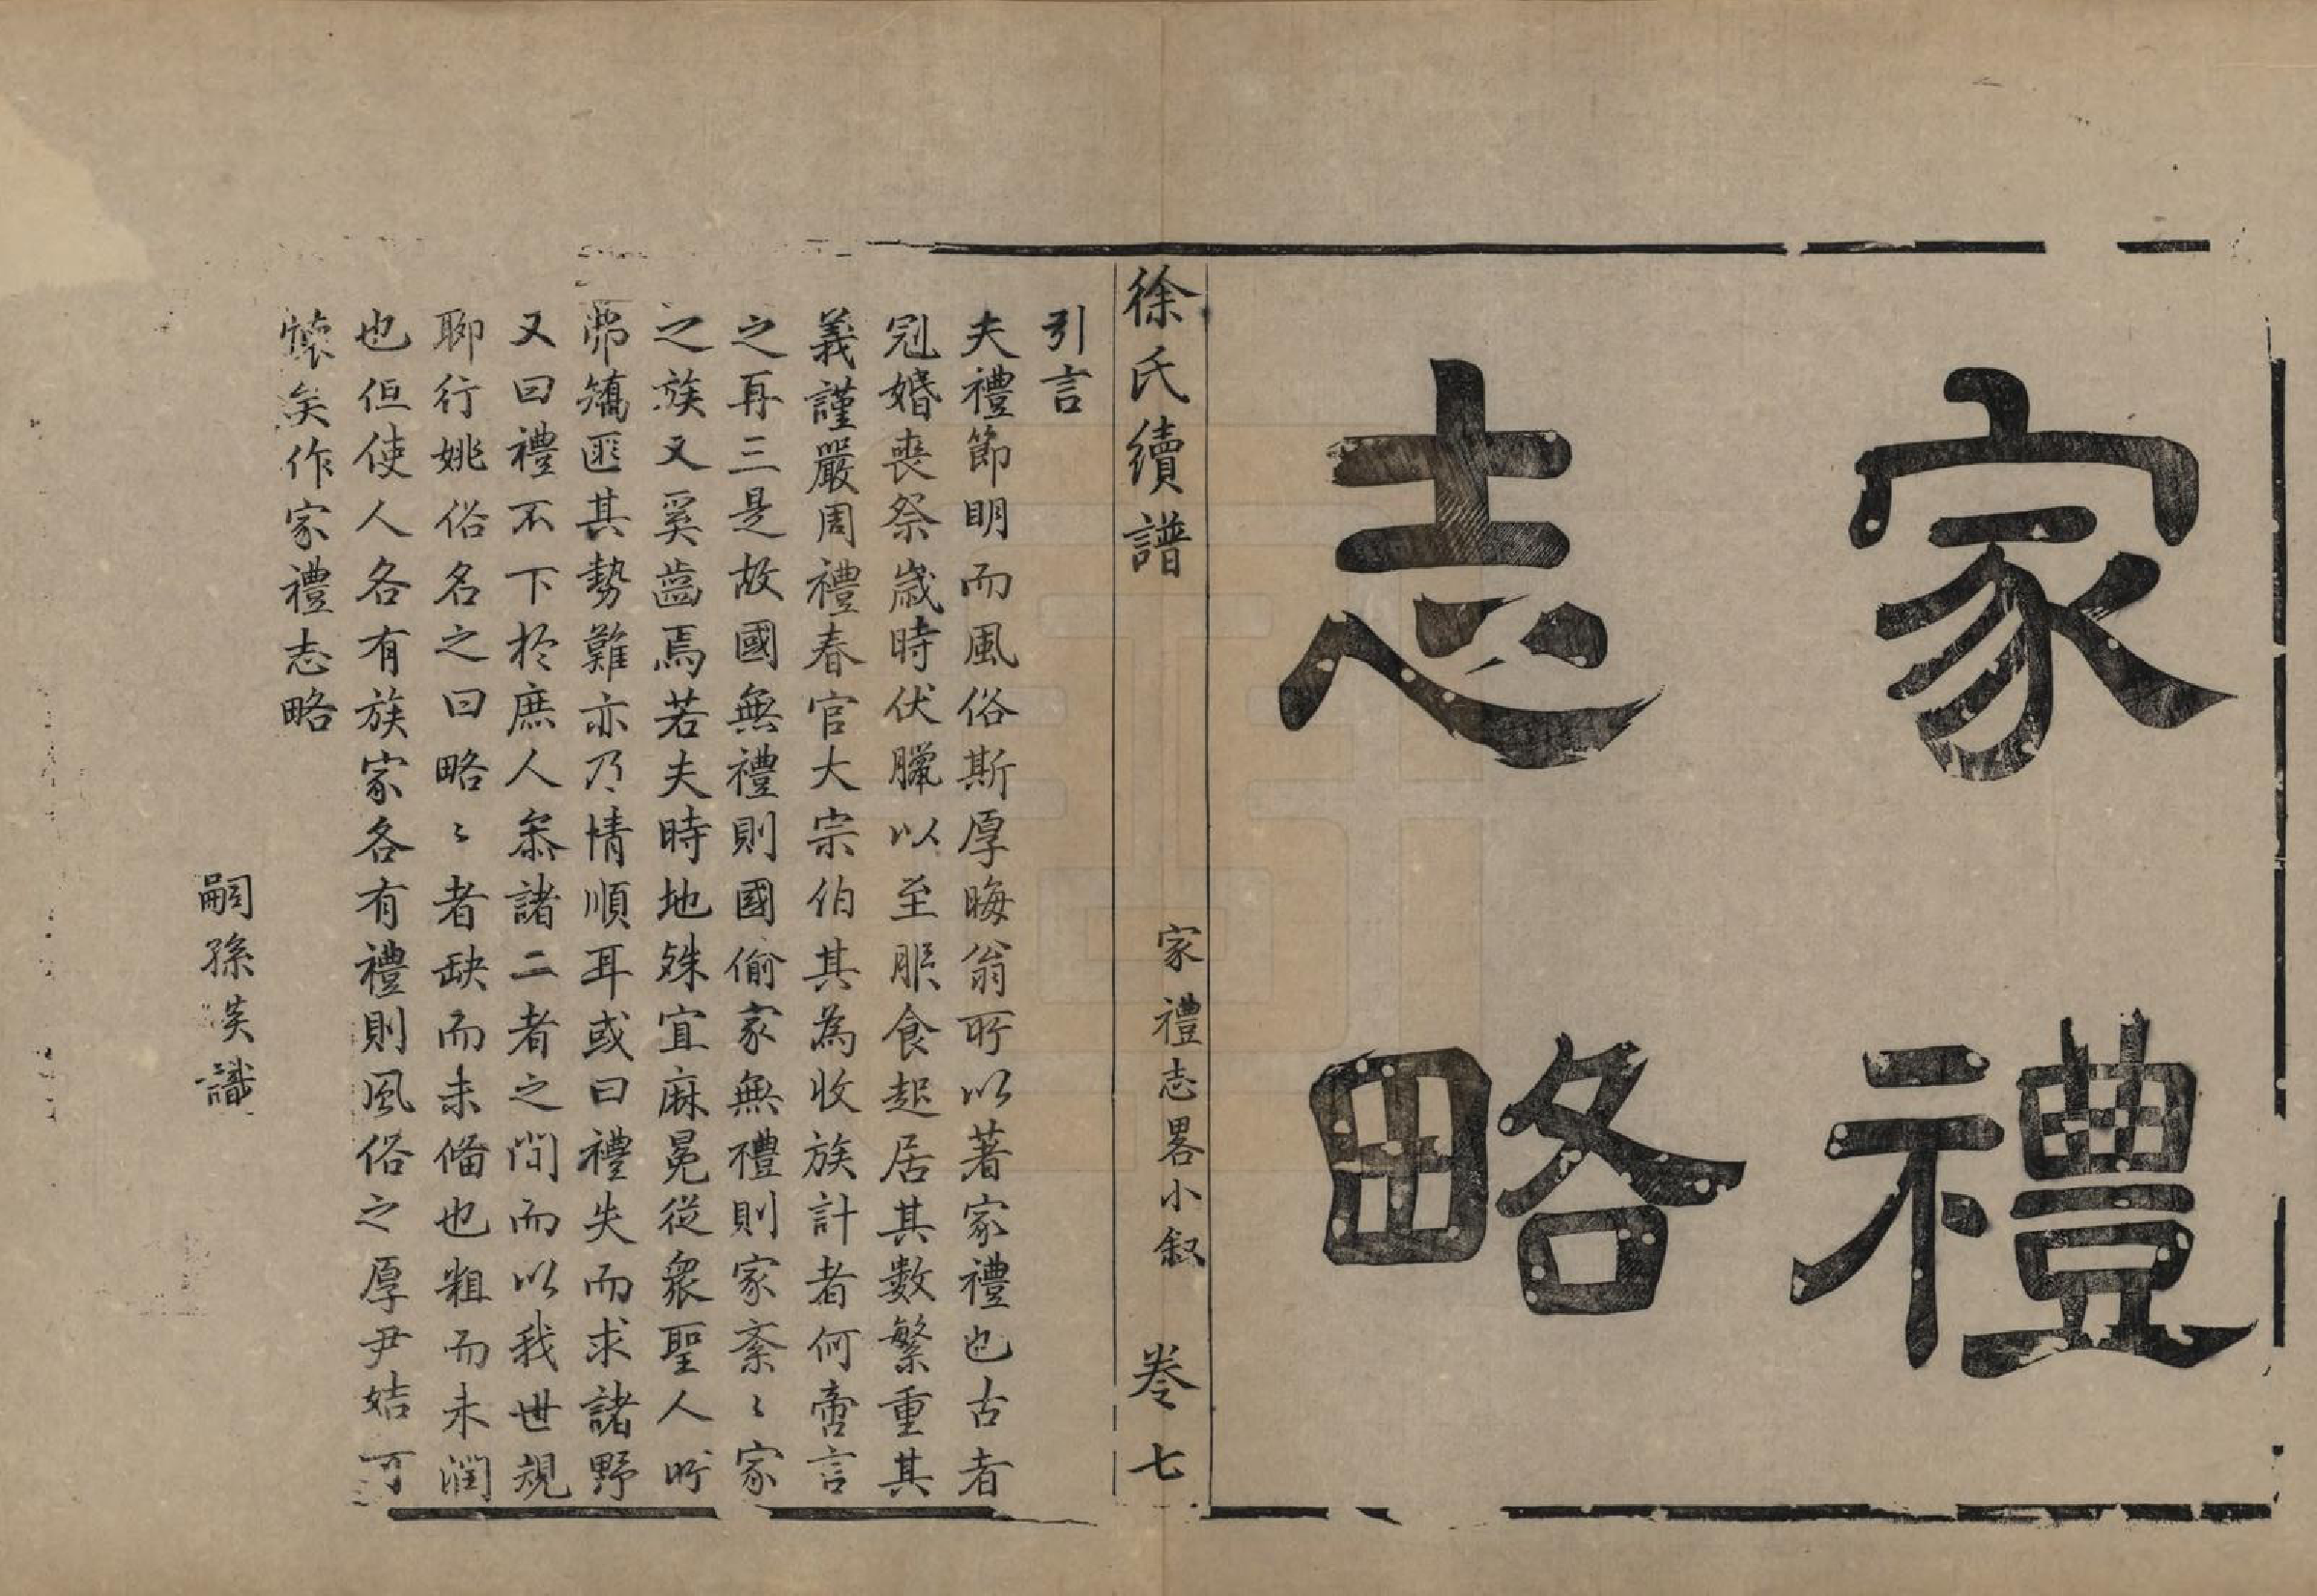 家禮
志略
徐氏續譜 家禮志畧小叙 卷七
引言
夫禮節明而風俗斯厚晦翁所以著家禮也古者
冠婚喪祭歲時伏臘以至服食起居其数繁重其
義謹嚴周禮春官大宗伯其為收族計者何啻言
之再三是故國無禮則國偷家無禮則家紊〻家
之族又奚齒焉若夫時地殊宜麻冕從衆聖人所
弗矯匪其勢難亦乃情順耳或曰禮失而求諸野
又曰禮不下於庶人叅諸二者之間而以我世規
聊行姚俗名之曰略〻者缺而未備也粗而未潤
也但使人各有族家各有禮則風俗之厚尹姞可
懷矣作家禮志略
嗣孫 識